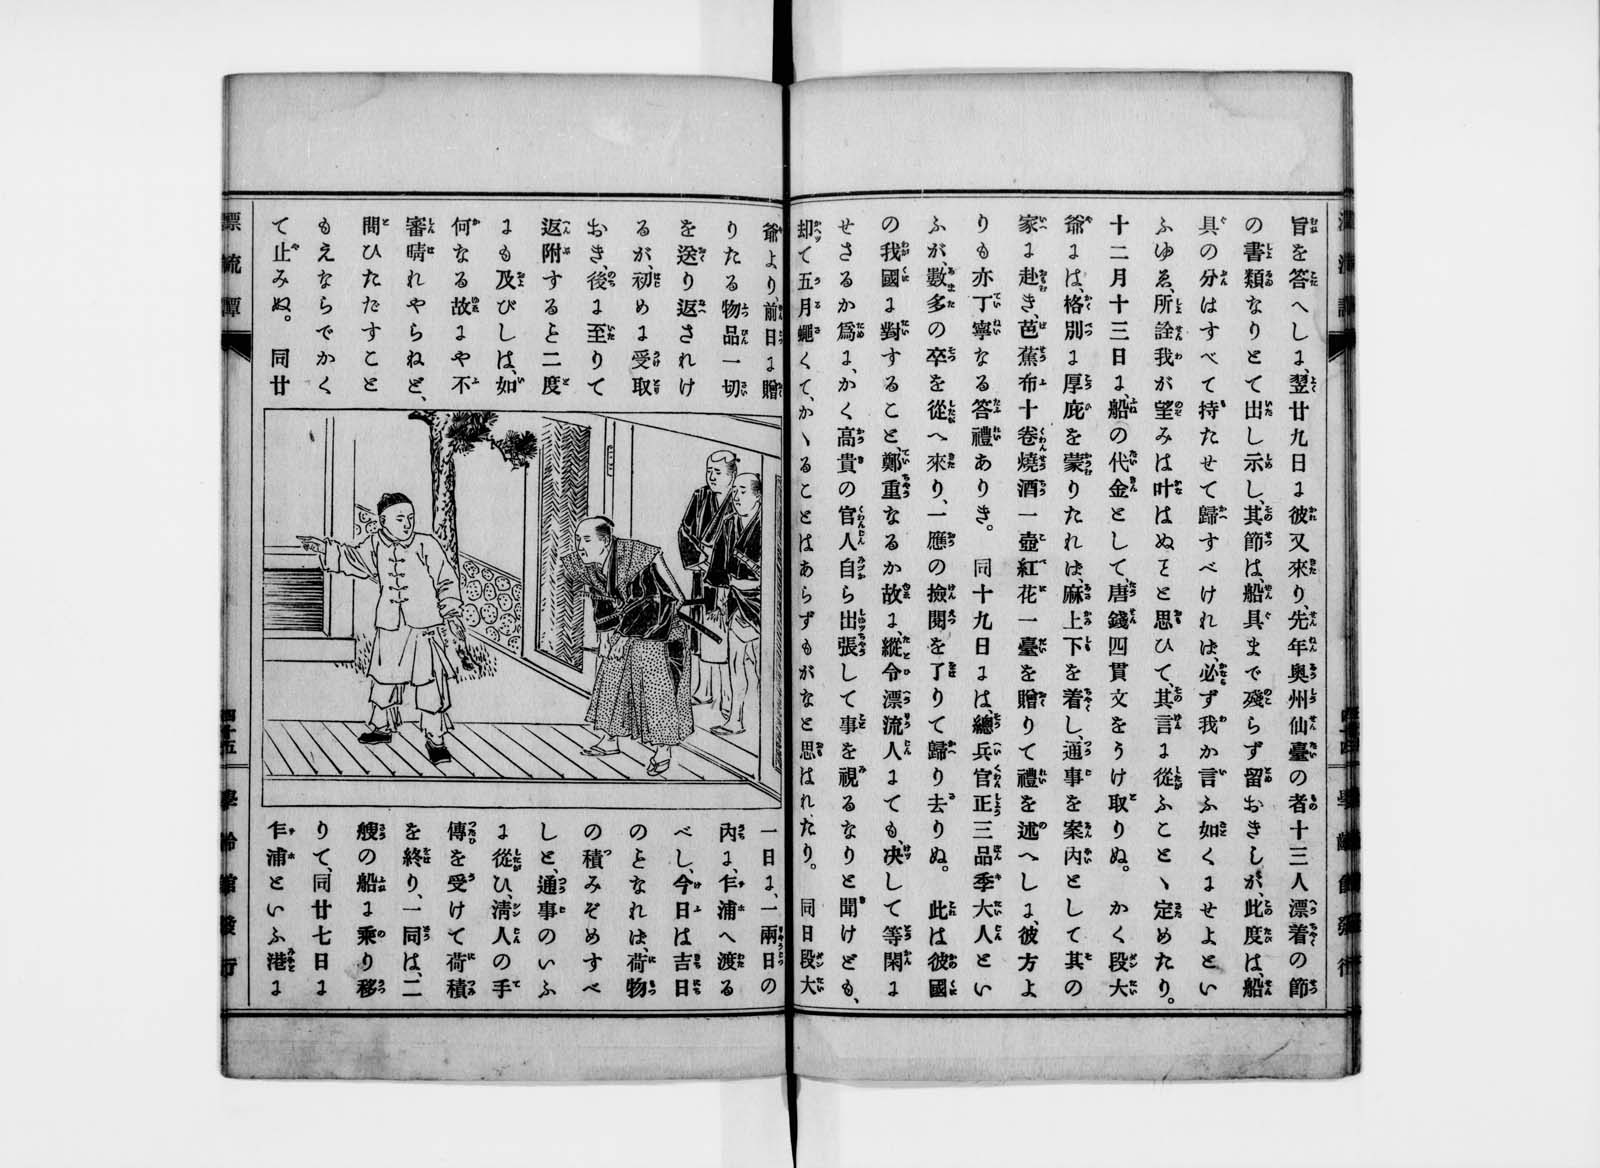 旨を答へしに、翌廿九日に彼又來り、先年奥州仙臺の者十三人漂着の節
の書類なりとて出し示し、其節は、船具まで殘らず留おきしが、此度は、船
具の分はすべて持たせて歸すべければ、必ず我か言ふ如くませよとい
ふゆゑ、所詮我が望みは叶はぬことと思ひて、其言に從ふことゝ定めたり。
十二月十三日に、船の代金として、唐錢四貫文をうけ取りぬ。 かく段大
爺には、格別に厚庇を蒙りたれは、麻上下を着し、通事を案内として其の
家に赴き、芭蕉布十卷燒酒一壺紅花一臺を贈りて禮を述へしに、彼方よ
りも亦丁寧なる答禮ありき。 同十九日には、總兵官正三品季大人とい
ふが、數多の卒を從へ來り、一應の撿閲を了りて歸り去りぬ。 此は彼國
の我國に對すること、鄭重なるか故に、縱令漂流人にても、决して等閑に
せさるか爲に、かく高貴の官人自ら出張して事を視るなりと聞けども、
却て五月蠅くて、かゝることはあらずもがなと思はれたり。 同日段大
爺より、前日に贈
りたる物品一切
を送り返されけ
るが、初めに受取
おき、後に至りて
返附すると二度
にも及びしは、如
何なる故にや不
審晴れやらねど、
問ひただすこと
もえならでかく
て止みぬ。 同廿
一日に、一兩日の
内に、乍浦へ渡る
べし、今日は吉日
のとなれは、荷物
の積みぞめすべ
しと、通事のいふ
に從ひ、清人の手
傳を受けて荷積
を終り、一同は、二
艘の船に乘り移
りて、同廿七日に
乍浦といふ港に
漂流譚
四十五
學齡館發行